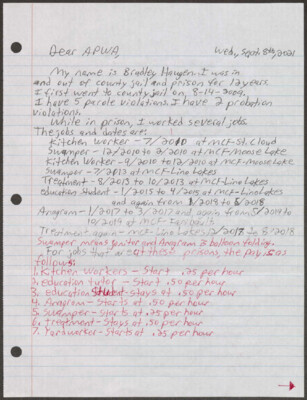 Dear APWA, Wed, Sept. 8th, 2021
My name is Bradley Haugen. I was in
and out of county jail and prison for 12 years
I first went to county jail on, 8-14-2009.
I have 5 parole violations. I have 2 probation
violations.
While in prison, I worked several jobs.
The jobs and dates are:
Kitchen worker - 7/2010 at MCF-St. Cloud
Swamper - 12/2010 to 2/2010 at MCF-Moose Lake
Kitchen Worker - 9/2010 to 12/2010 at MCF-Moose Lake
Swamper - 7/2013 at MCF-Lino Lakes
Treatment - 8/2013 to 10/2013 at MCF-Lino Lakes
Education Student - 1/2015 to 4/2015 at MCF-Lino Lakes
and again from 1/2018 to 5/2018
Anagram - 1/2017 to 3/2017 and again from 5/2019 to
10/2019 at MCF-Faribault
Treatment again - MCF-Lino Lakes 12/2017 to 6/2018
Swamper means janitor and Anagram is balloon folding.
For jobs that are at these prisons, the pay is as
follows:
1. Kitchen workers - Start .25 per hour
2. education tutor - Start .50 per hour
3. education Student - stays at .50 per hour
4. Anagram - Starts at .50 per hour
5. Swamper - starts at .25 per hour
6. treatment - Stays at .50 per hour
7. Yard worker - Starts at .25 per hour